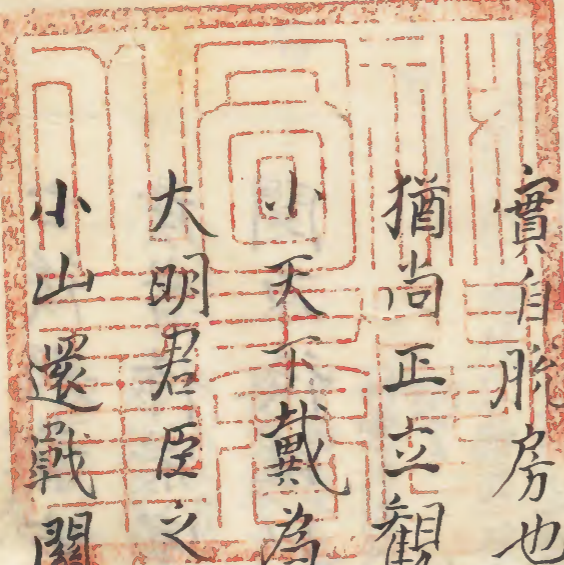 實自脫房也
猶尚正立観
小天下戴為
大明君臣之
小山還戰關